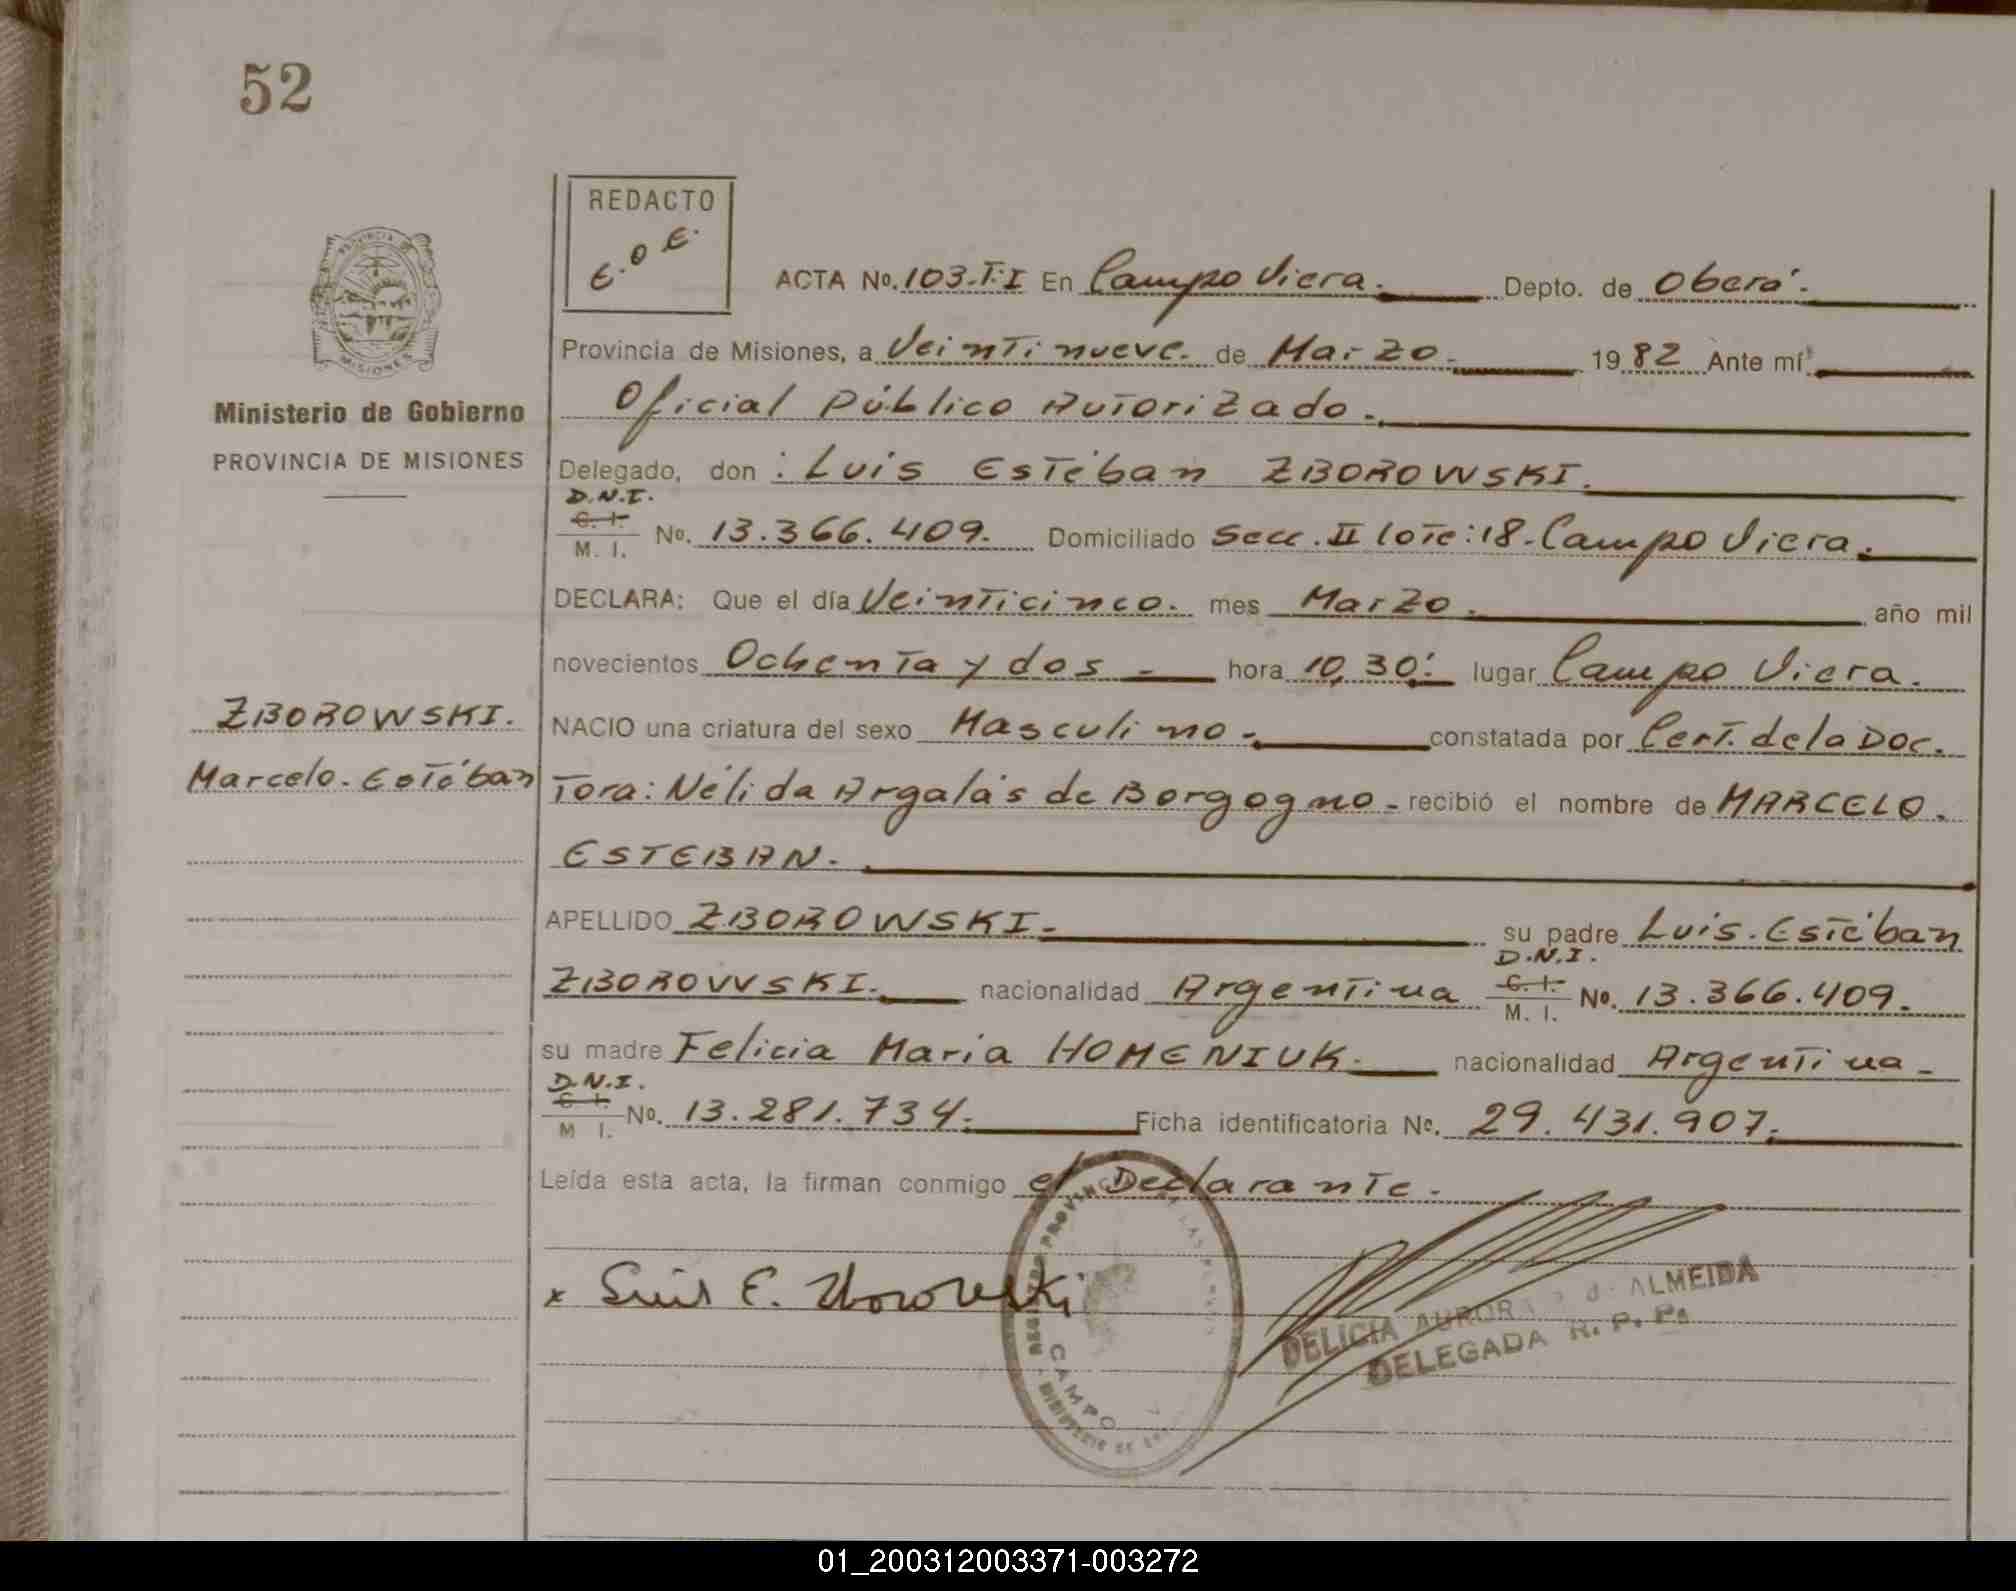 52
REDACTO
E.O E.
PROVINCIA DE
MISIONES
Ministerio de Gobierno
PROVINCIA DE MISIONES
ACTA No. 103-T:I En Campo Viera. Depto. de Oberá.
Provincia de Misiones, a Veintinueve. de Marzo. 1982 Ante mí
Oficial Público Autorizado.
Delegado, don : Luis Estéban ZBOROWSKI.
D.N.I.
C. I.
M. I. No. 13.366.409. Domiciliado Secc. II lote:18-Campo Viera.
DECLARA: Que el día Veinticinco. mes Marzo. año mil
novecientos Ochenta y dos - hora 10,30: lugar Campo Viera.
ZBOROWSKI.
NACIO una criatura del sexo Masculino - constatada por Cert. de la Doc.
Marcelo. Estéban
tora: Nélida Argalás de Borgogno - recibió el nombre de MARCELO.
ESTEBAN.
APELLIDO ZBOROWSKI. su padre Luis. Estéban
D.N.I.
ZBOROWSKI. nacionalidad Argentina C. I. M. I. No. 13.366.409.
su madre Felicia Maria HOMENIUK. nacionalidad Argentina -
D.N.I.
C. I.
M I. No. 13.281.734. Ficha identificatoria No. 29.431.907.
Leída esta acta, la firman conmigo el Declarante.
x Luis E. Zborowski
REGISTRO PROVINCIAL DE LAS PERSONAS
CAMPO V
MINISTERIO DE
DELICIA AURORA d. ALMEIDA
DELEGADA R. P. P.
01_200312003371-003272